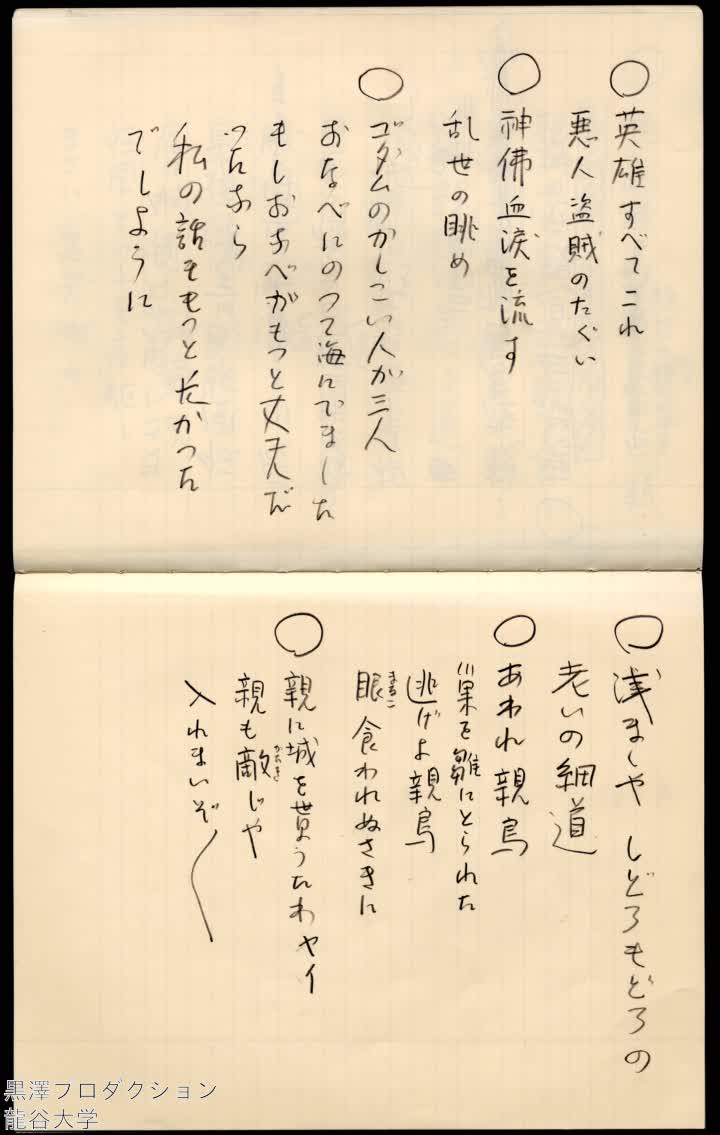 ○ 英雄すべてこれ
悪人盗賊のたぐい
○ 神佛血涙を流す
乱世の眺め
○ ゴダムのかしこい人が三人
おなべにのつて海にでました
もしおなべがもつと丈夫だ
つたなら
私の話ももつと長かつた
でしように
○ 浅ましや しどろもどろの
老いの細道
○ あわれ親鳥
巣を雛にとられた
逃げよ親鳥
眼食われぬさきに
まなこ
○ 親に城を貰うたわヤイ
親も敵じや
かたき
入れまいぞ〱
黒澤プロダクション
龍谷大学